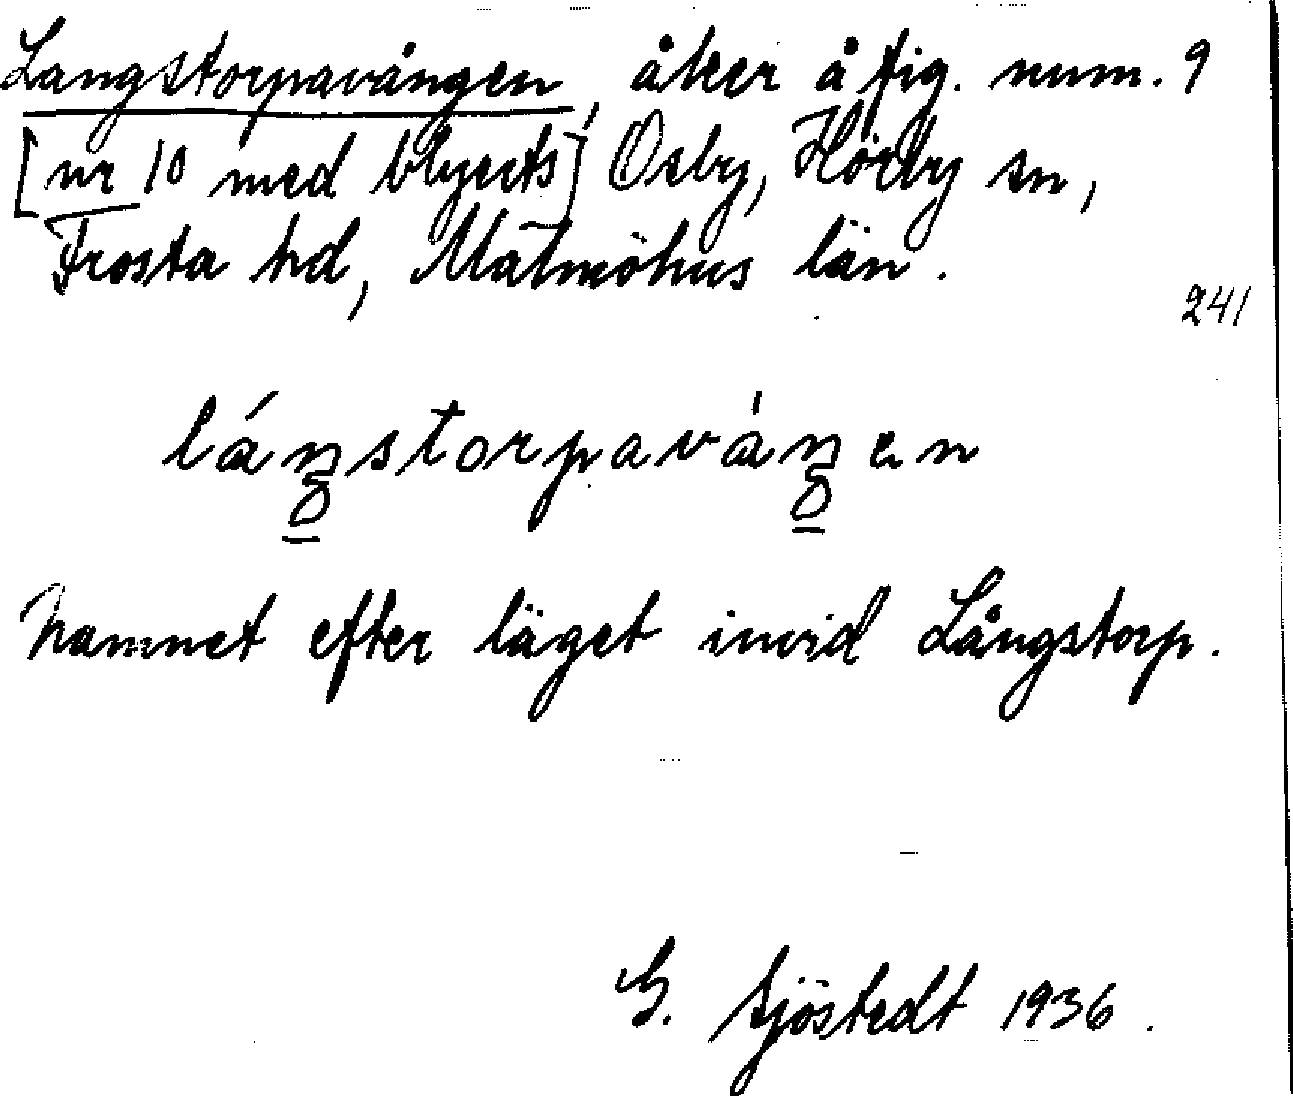 Langstorpavången, åker å fig. num. 9
[nr 10 med blyerts] Osby, Hörby sn,
Frosta hd, Malmöhus län.
241
láŋstorpaváŋen
Namnet efter läget invid Långstorp.
G. Sjöstedt 1936.